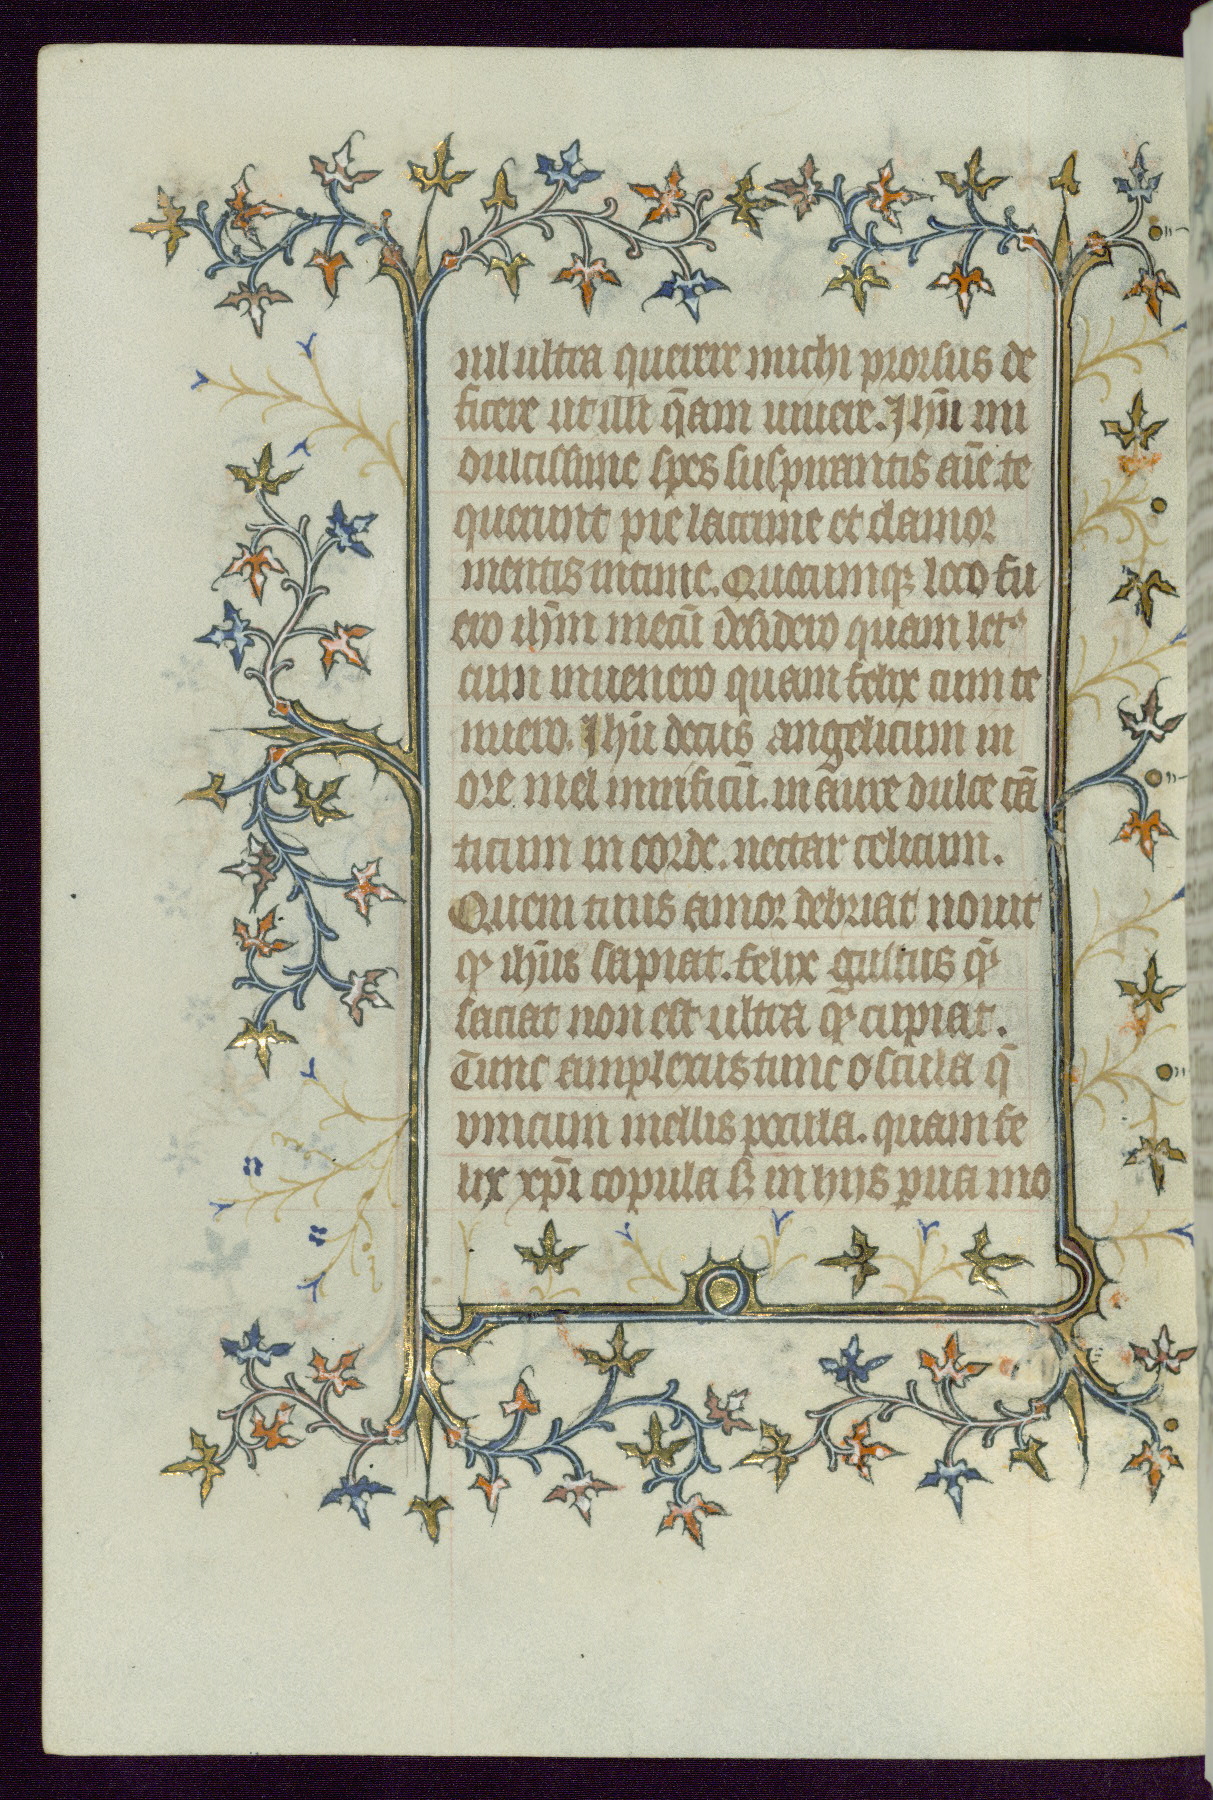 nil ultra querere michi prorsus de
ficere ut illi q̄am uiuere. Jhū mi
dulcissime spes suspirantis aīe. te
querunt pie lacrime et clamor
mentis intime. Quocumqꝫ loco fu
ero ihm̄ mecū desidero quam let⁹
cum inuenero quam felix cum te
nuero. Jhū decus angelicum in
ore mel mirificū. in aure dulce cā
ticum in corde. nectar celicum.
Quem tuus amor debriat nouit
qͥ ihūs sapiat. felix gustus qͥ
saciat non est ultra qͥ cupiat.
Tunc amplexus tunc oscula q̄
vincum mellis pocula. quam fe
lix xp̄i copula s̄ in hijs ꝑua mo